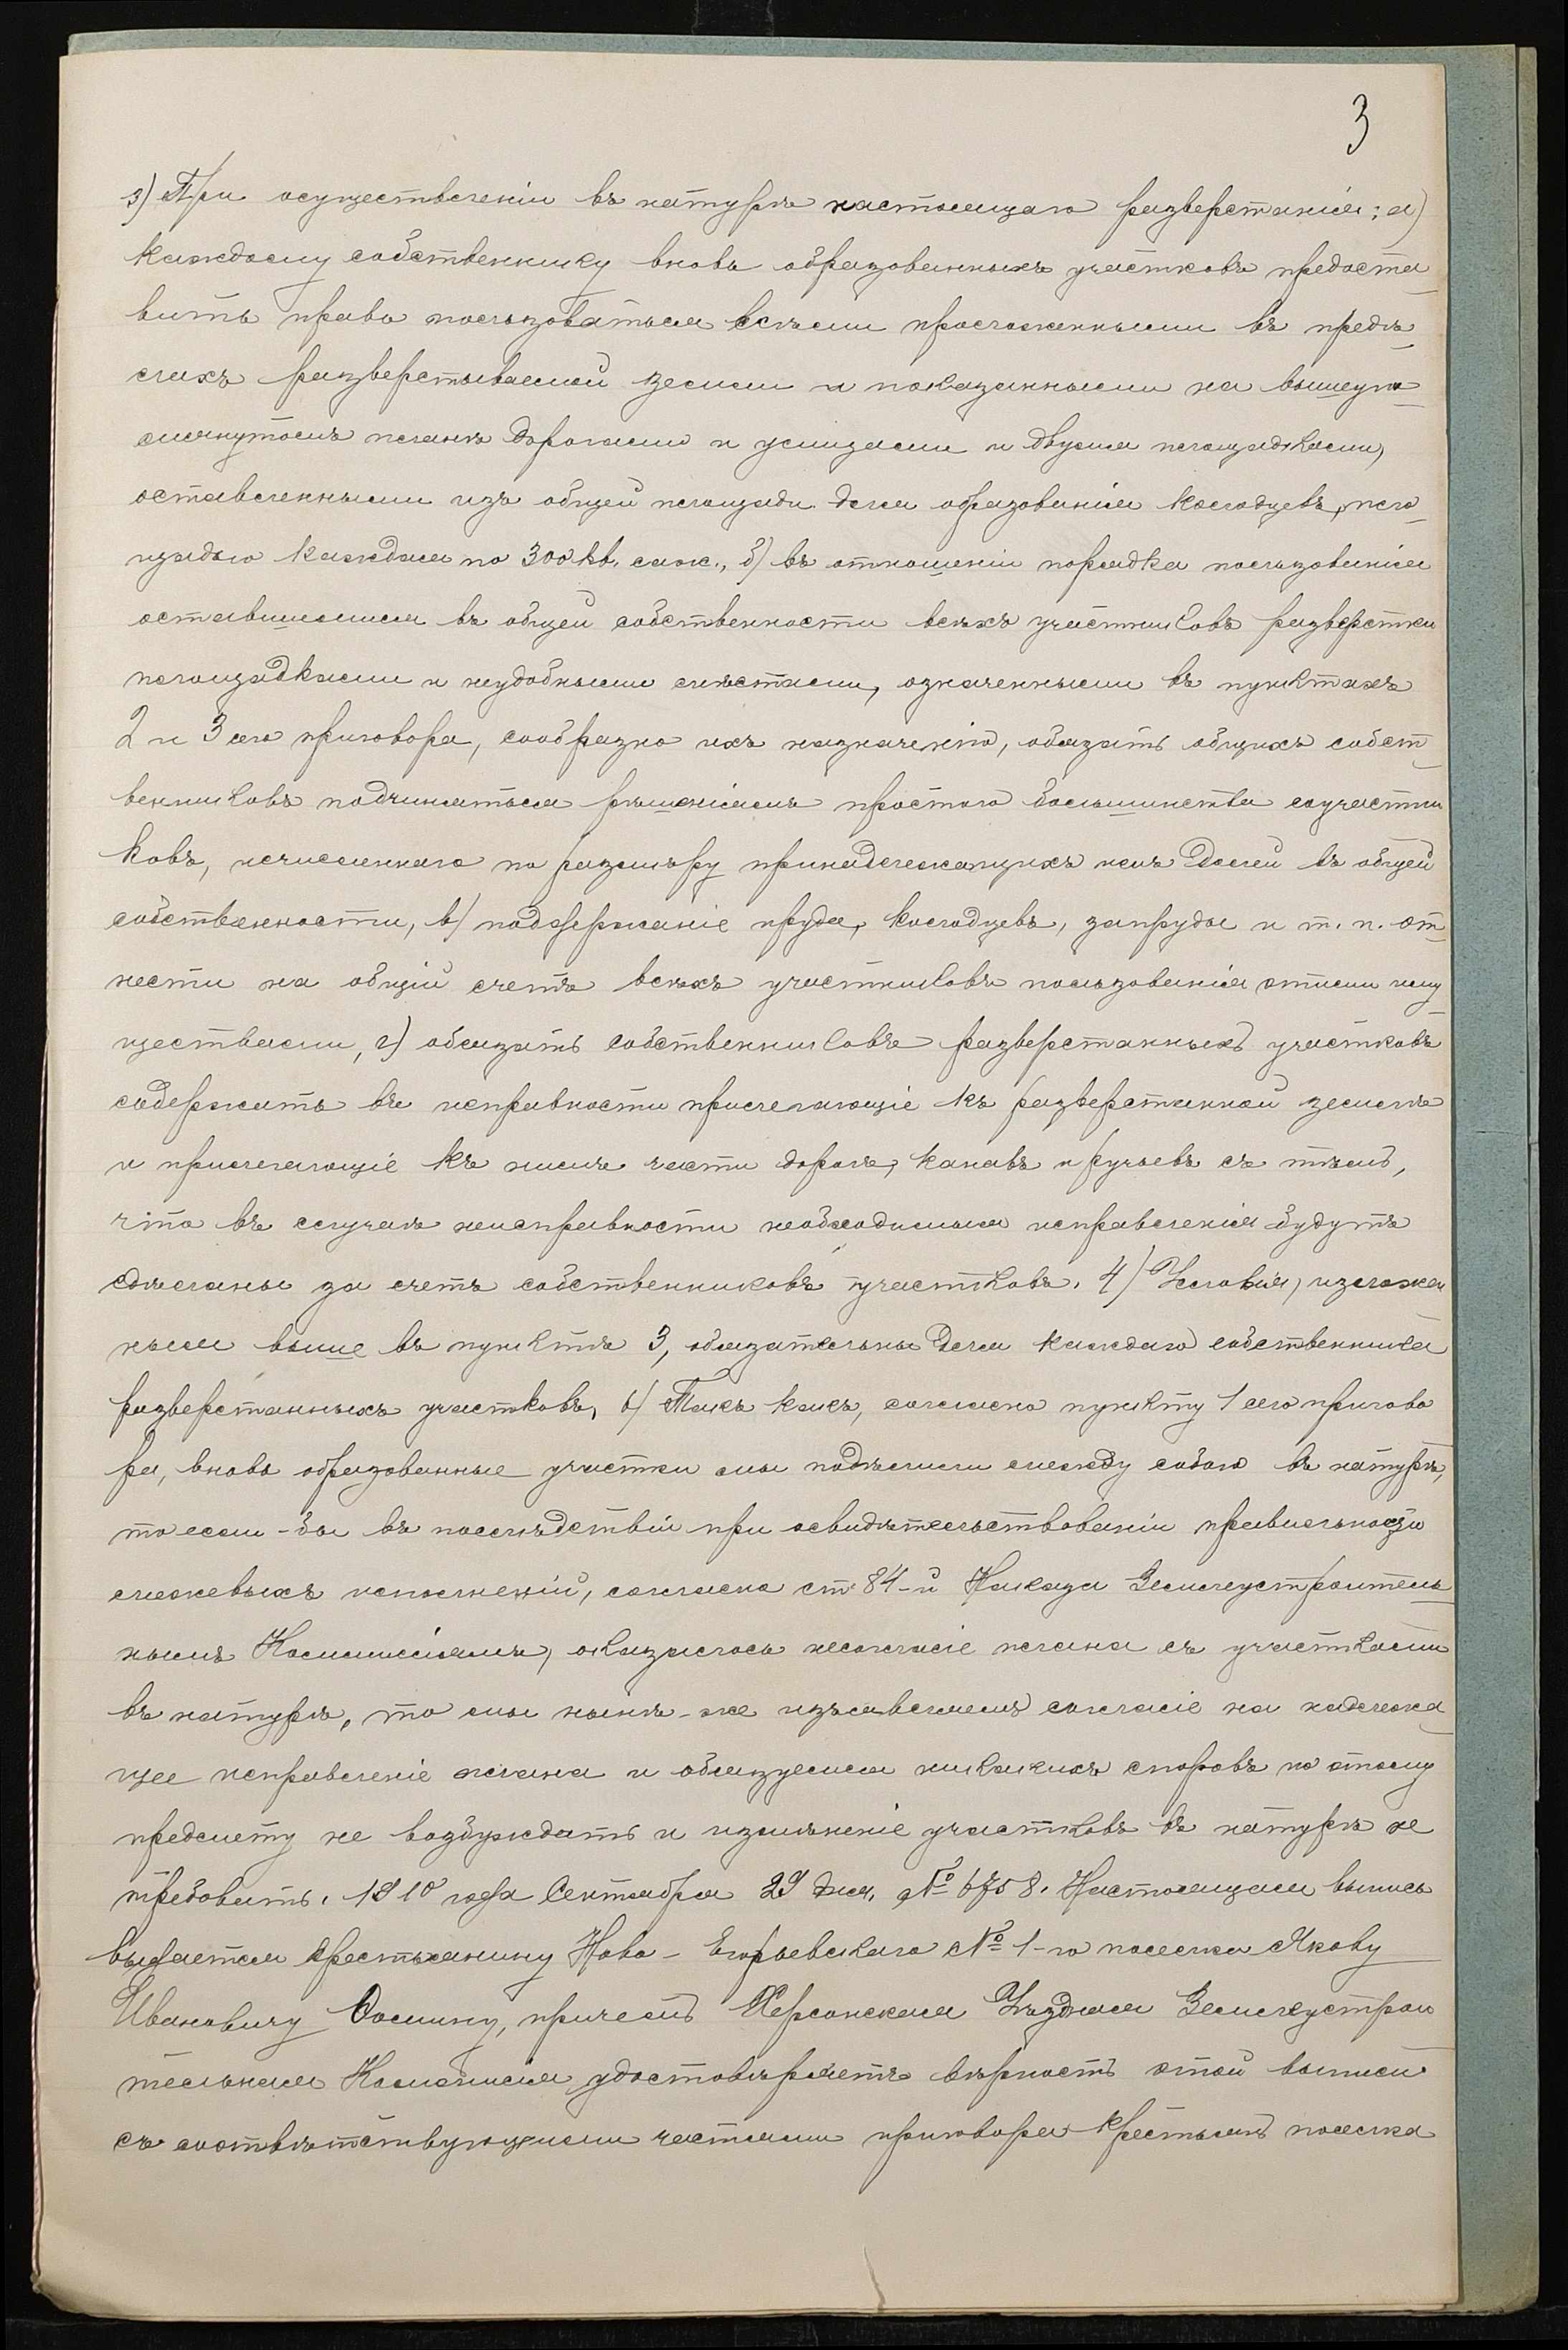 3
3) При осуществленіи въ натурѣ настоящаго разверстанія: а)
каждому собственнику вновь образованныхъ участковъ предоста
вить право пользоваться всѣми проложенными въ предѣ
лахъ разверстываемой земли и показанными на вышеупо
мянутомъ планѣ дорогами и улицами и двумя площадками,
оставленными изъ общей площади для образованія колодцевъ, пло
щадью каждая по 300 кв. саж., б) въ отношеніи порядка пользованія
оставшимися въ общей собственности всѣхъ участниковъ разверстки
площадками и неудобными мѣстами, означенными въ пунктахъ
2 и 3 сего приговора, сообразно ихъ назначенію, обязать общихъ собст
венниковъ подчиняться рѣшеніямъ простого большинства соучастни
ковъ, исчисленнаго по размѣру принадлежащихъ имъ долей въ общей
собственности, в) поддержаніе пруда, колодцевъ, запруды и т. п. от
нести на общій счетъ всѣхъ участниковъ пользованія этими иму
ществами, г) обязать собственниковъ разверстанныхъ участковъ
содержать въ исправности прилегающіе къ разверстанной землѣ
и прилегающіе къ нимъ части дорогъ, канавъ и ручьевъ съ тѣмъ,
что въ случаѣ неисправности необходимыя исправленія будутъ
сдѣланы за счетъ собственниковъ участковъ. 4) Условія, изложен
ныя выше въ пунктѣ 3, обязательны для каждаго собственника
разверстанныхъ участковъ, 6) Такъ какъ, согласно пункту 1 сего пригово
ра, вновь образованные участки мы подѣлили между собою въ натурѣ,
то если-бы въ послѣдствіи при освидѣтельствованіи правильности
межевыхъ исполненій, согласно ст. 84-й Наказа Землеустроитель
нымъ Коммиссіямъ, оказалось несогласіе плана съ участками
въ натурѣ, то мы нынѣ-же изъявляемъ согласіе на надлежа
щее исправленіе плана и обязуемся никакихъ споровъ по этому
предмету не возбуждать и измѣненіе участковъ въ натурѣ не
требовать. 1910 года Сентября 29 дня. № 6758. Настоящая выпись
выдается крестьянину Ново-Егорьевскаго № 1-го поселка Якову
Ивановичу Фомину, причемъ Херсонская Уѣздная Землеустрои
тельная Коммисія удостовѣряетъ вѣрность этой выписи
съ соотвѣтствующими частями приговора крестьянъ поселка